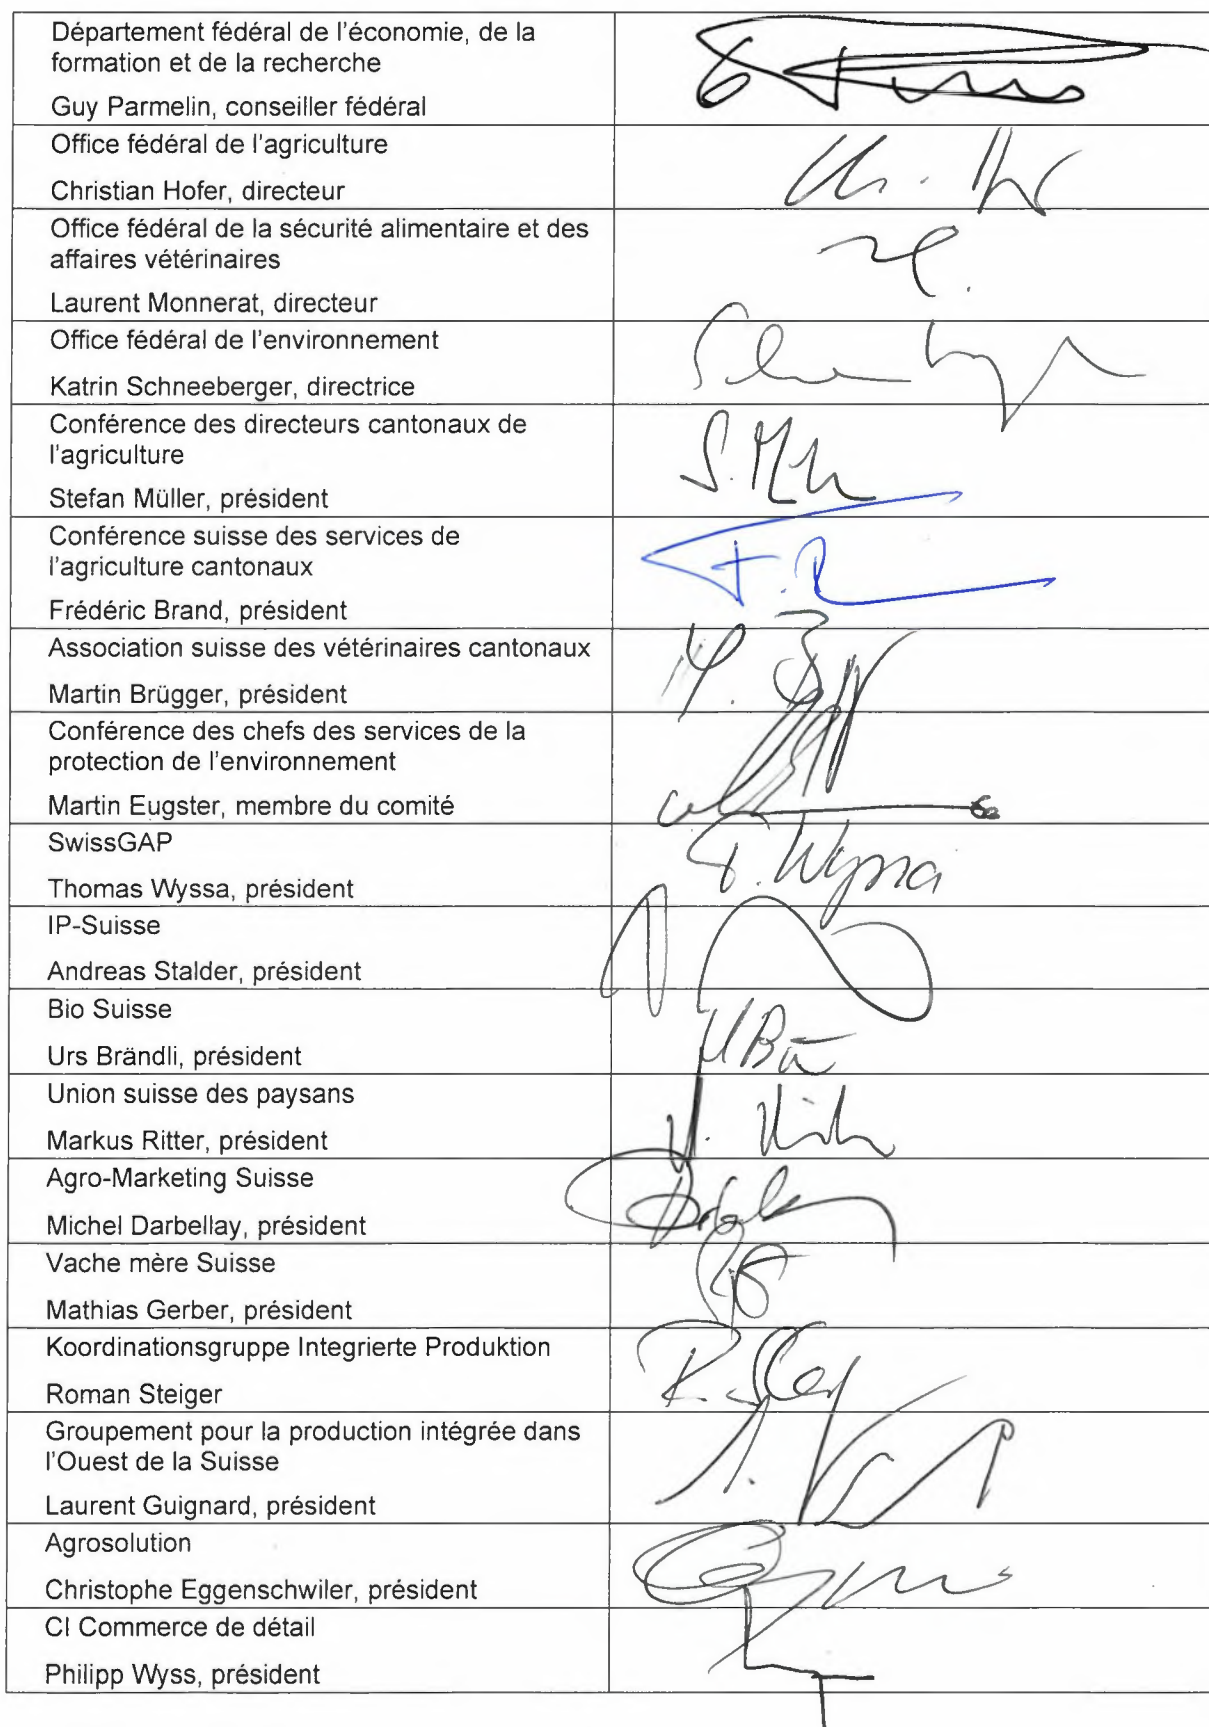 Département fédéral de l'économie, de la
formation et de la recherche
Guy Parmelin, conseiller fédéral
Office fédéral de l'agriculture
Christian Hofer, directeur
Office fédéral de la sécurité alimentaire et des
affaires vétérinaires
Laurent Monnerat, directeur
Office fédéral de l'environnement
Katrin Schneeberger, directrice
Conférence des directeurs cantonaux de
l'agriculture
Stefan Müller, président
S. M
Conférence suisse des services de
l'agriculture cantonaux
F. B
Frédéric Brand, président
Association suisse des vétérinaires cantonaux
M. B
Martin Brügger, président
Conférence des chefs des services de la
protection de l'environnement
Martin Eugster, membre du comité
SwissGAP
T. Wyssa
Thomas Wyssa, président
IP-Suisse
Andreas Stalder, président
Bio Suisse
UBä
Urs Brändli, président
Union suisse des paysans
Markus Ritter, président
Agro-Marketing Suisse
Michel Darbellay, président
Vache mère Suisse
Mathias Gerber, président
Koordinationsgruppe Integrierte Produktion
Roman Steiger
Groupement pour la production intégrée dans
l'Ouest de la Suisse
Laurent Guignard, président
Agrosolution
Christophe Eggenschwiler, président
CI Commerce de détail
Philipp Wyss, président